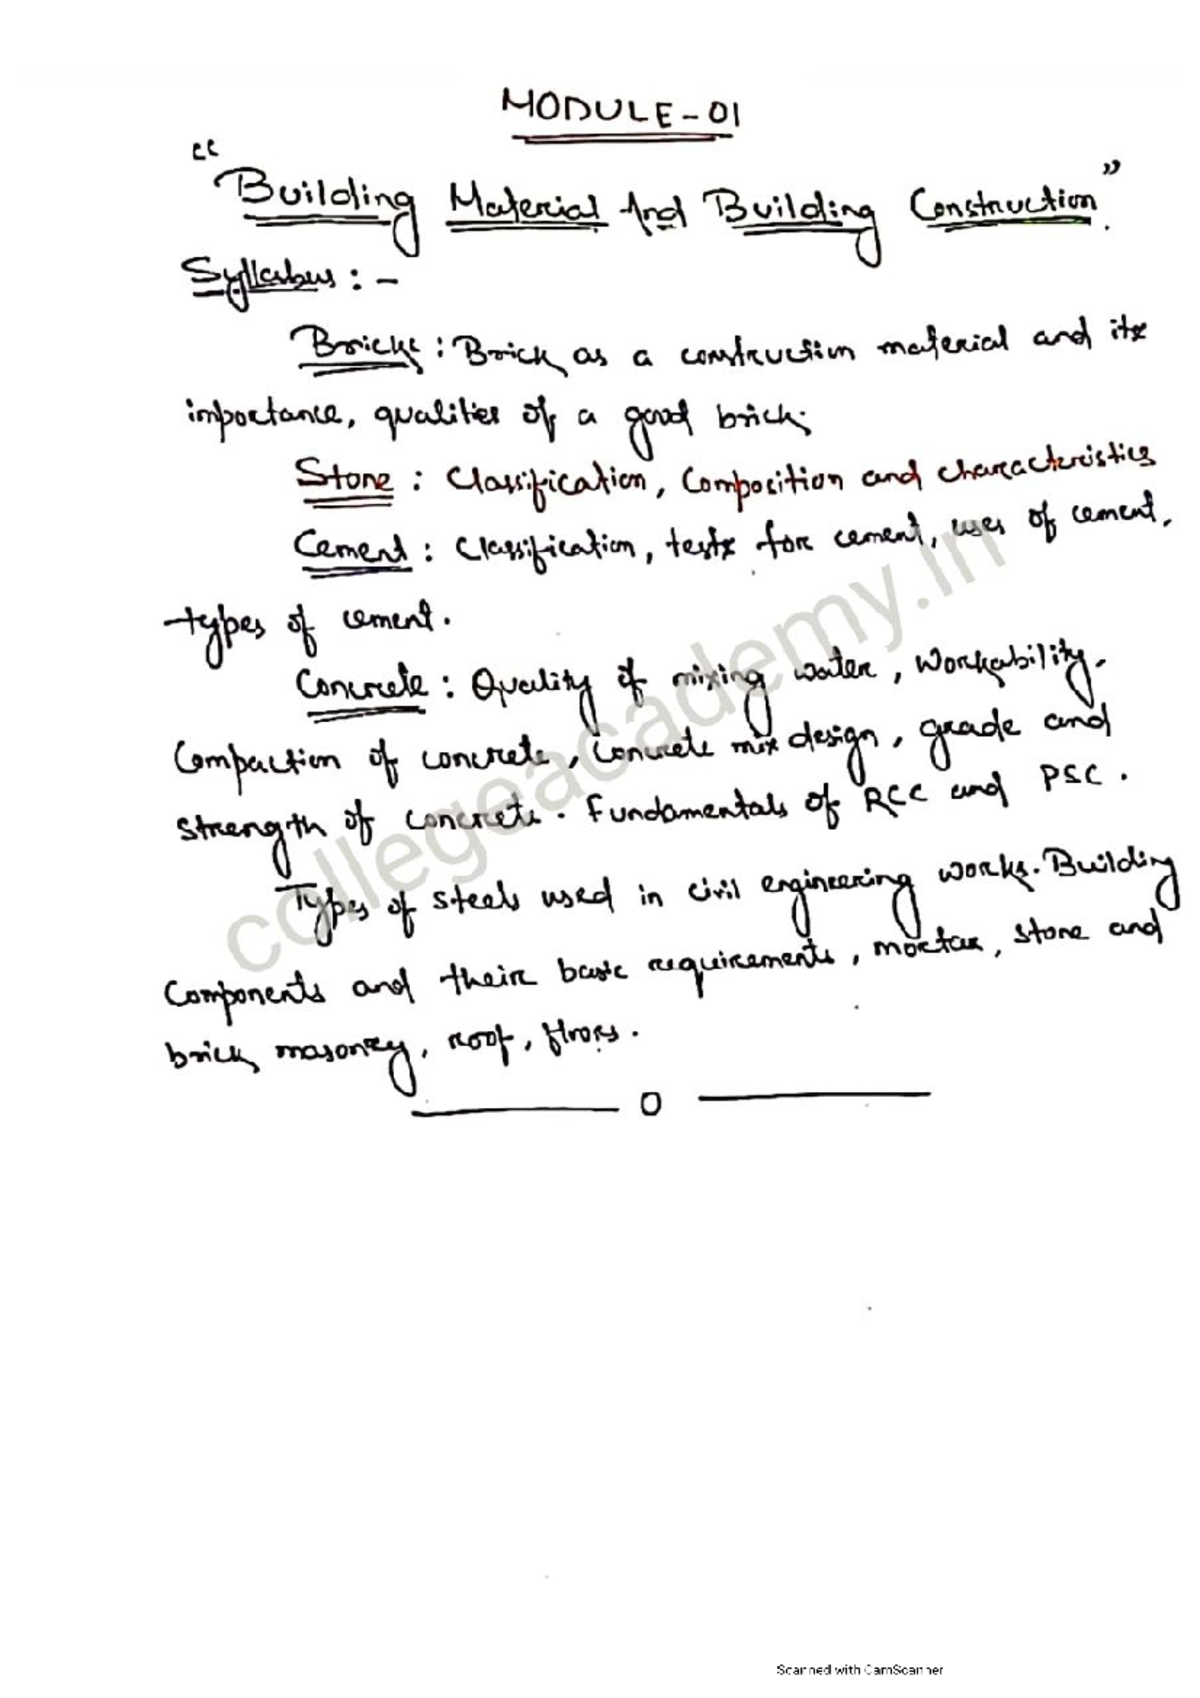 MODULE-01
"Building Material And Building Construction".
Syllabus : -
Bricks : Brick as a construction material and its
importance, qualities of a good brick.
Stone : Classification, Composition and characteristics
Cement : Classification, tests for cement, uses of cement,
types of cement.
Concrete : Quality of mixing water, Workability,
Compaction of concrete, Concrete mix design, grade and
strength of concrete. Fundamentals of RCC and PSC.
Types of steels used in civil engineering works. Building
Components and their basic requirements, mortar, stone and
brick masonry, roof, floors.
O
collegeacademy.in
Scanned with CamScanner